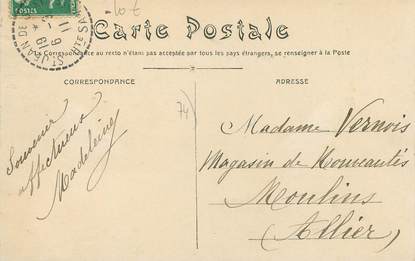 Carte Postale
La Correspondance au recto n'étant pas acceptée par tous les pays étrangers, se renseigner à la Poste
CORRESPONDANCE
ADRESSE
Souvenir
affectueux
Madeleine
74
Madame Vernois
Magasin de Nouveautés
Moulins
(Allier)
ST JEAN DE